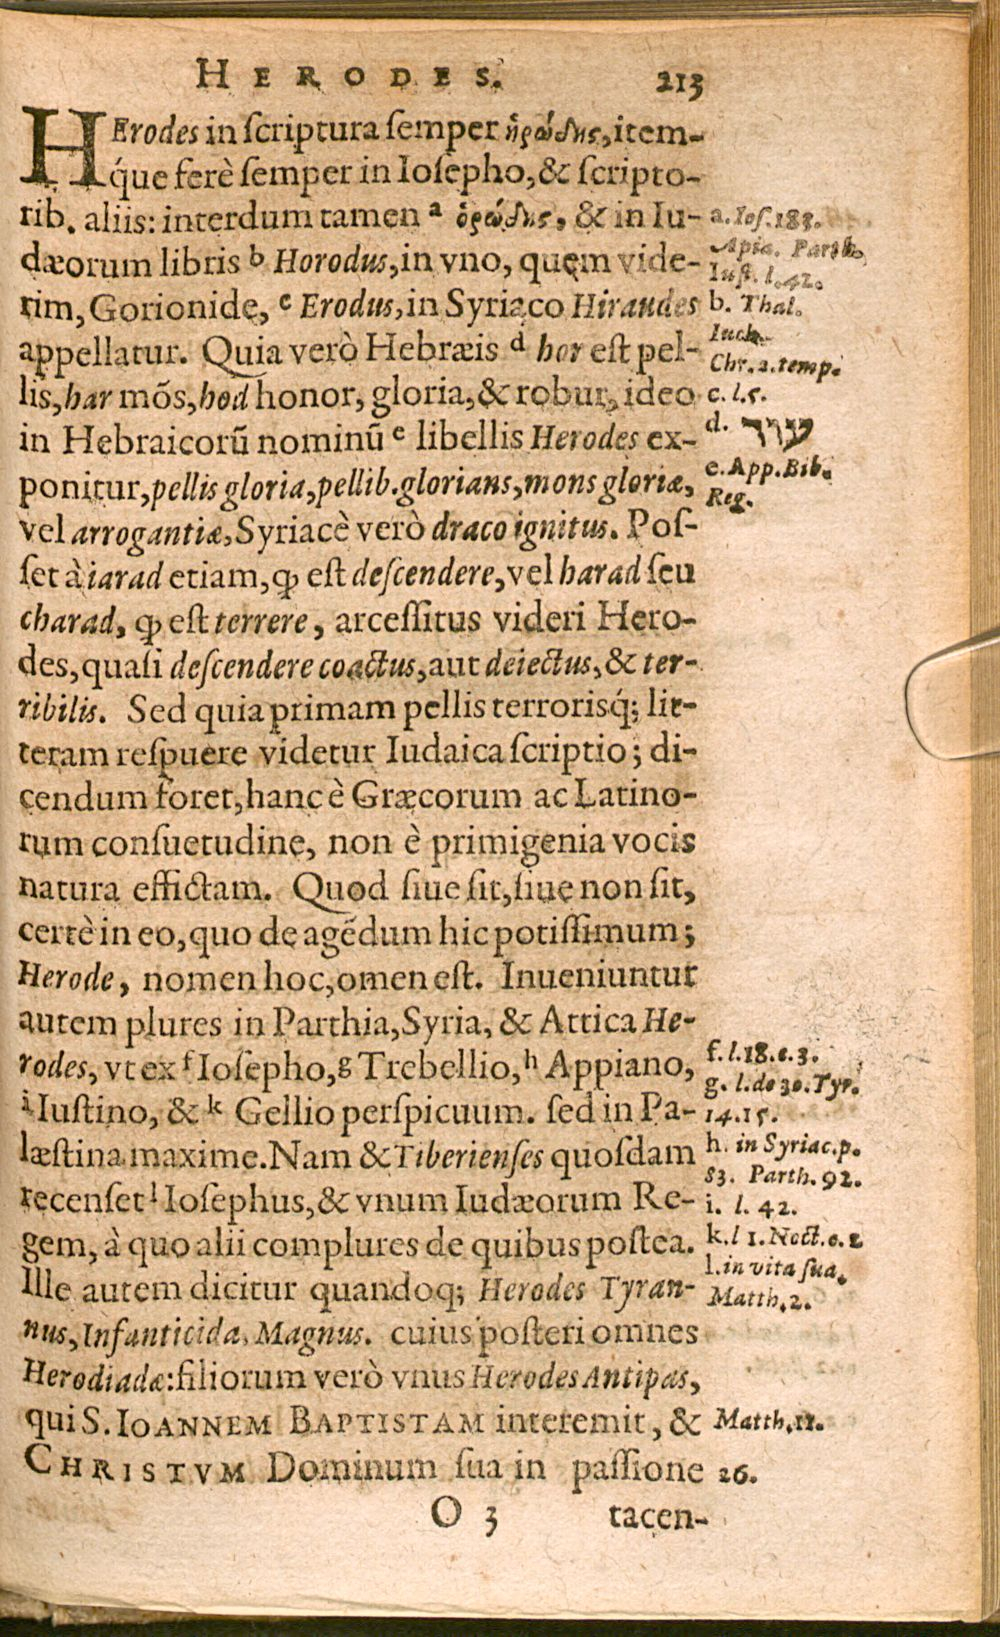 HERODES. 213
HErodes in ſcriptura ſemper ἡρώδης, item-
q́ue ferè ſemper in Ioſepho, & ſcripto-
rib. aliis: interdum tamen ᵃ ὁρώδης, & in Iu-
dæorum libris ᵇ Horodus, in vno, quem vide-
rim, Gorionide, ᶜ Erodus, in Syriaco Hiraudes
appellatur. Quia verò Hebræis ᵈ hor eſt pel-
lis, har mõs, hod honor, gloria, & robur, ideo
in Hebraicorũ nominũ ᵉ libellis Herodes ex-
ponitur, pellis gloria, pellib. glorians, mons gloriæ,
vel arrogantiæ, Syriacè verò draco ignitus. Poſ-
ſet à iarad etiam, ꝙ eſt deſcendere, vel harad ſeu
charad, ꝙ eſt terrere, arceſſitus videri Hero-
des, quaſi deſcendere coactus, aut deiectus, & ter-
ribilis. Sed quia primam pellis terrorisq́; lit-
teram reſpuere videtur Iudaica ſcriptio; di-
cendum foret, hanc è Græcorum ac Latino-
rum conſuetudine, non è primigenia vocis
natura effictam. Quod ſiue ſit, ſiue non ſit,
certè in eo, quo de agẽdum hic potiſſimum;
Herode, nomen hoc, omen eſt. Inueniuntur
autem plures in Parthia, Syria, & Attica He-
rodes, vt ex ᶠ Ioſepho, ᵍ Trebellio, ʰ Appiano,
ⁱ Iuſtino, & ᵏ Gellio perſpicuum. ſed in Pa-
læſtina maxime. Nam & Tiberienſes quoſdam
recenſet ˡ Ioſephus, & vnum Iudæorum Re-
gem, à quo alii complures de quibus poſtea.
Ille autem dicitur quandoq; Herodes Tyran-
nus, Infanticida, Magnus. cuius poſteri omnes
Herodiadæ: filiorum verò vnus Herodes Antipas,
qui S. IOANNEM BAPTISTAM interemit, &
CHRISTVM Dominum ſua in paſſione
O 3 tacen-
a. Ioſ. 183.
Apia. Parth.
Iuſt. l. 42.
b. Thal.
Iuch.
Chr. 2. temp.
c. l. 5.
d. עור
e. App. Bib.
Reg.
f. l. 18. c. 3.
g. l. de 30. Tyr.
14. 15.
h. in Syriac. p.
83. Parth. 92.
i. l. 42.
k. l 1. Noct. c. 2
l. in vita ſua.
Matth. 2.
Matth. 11.
26.